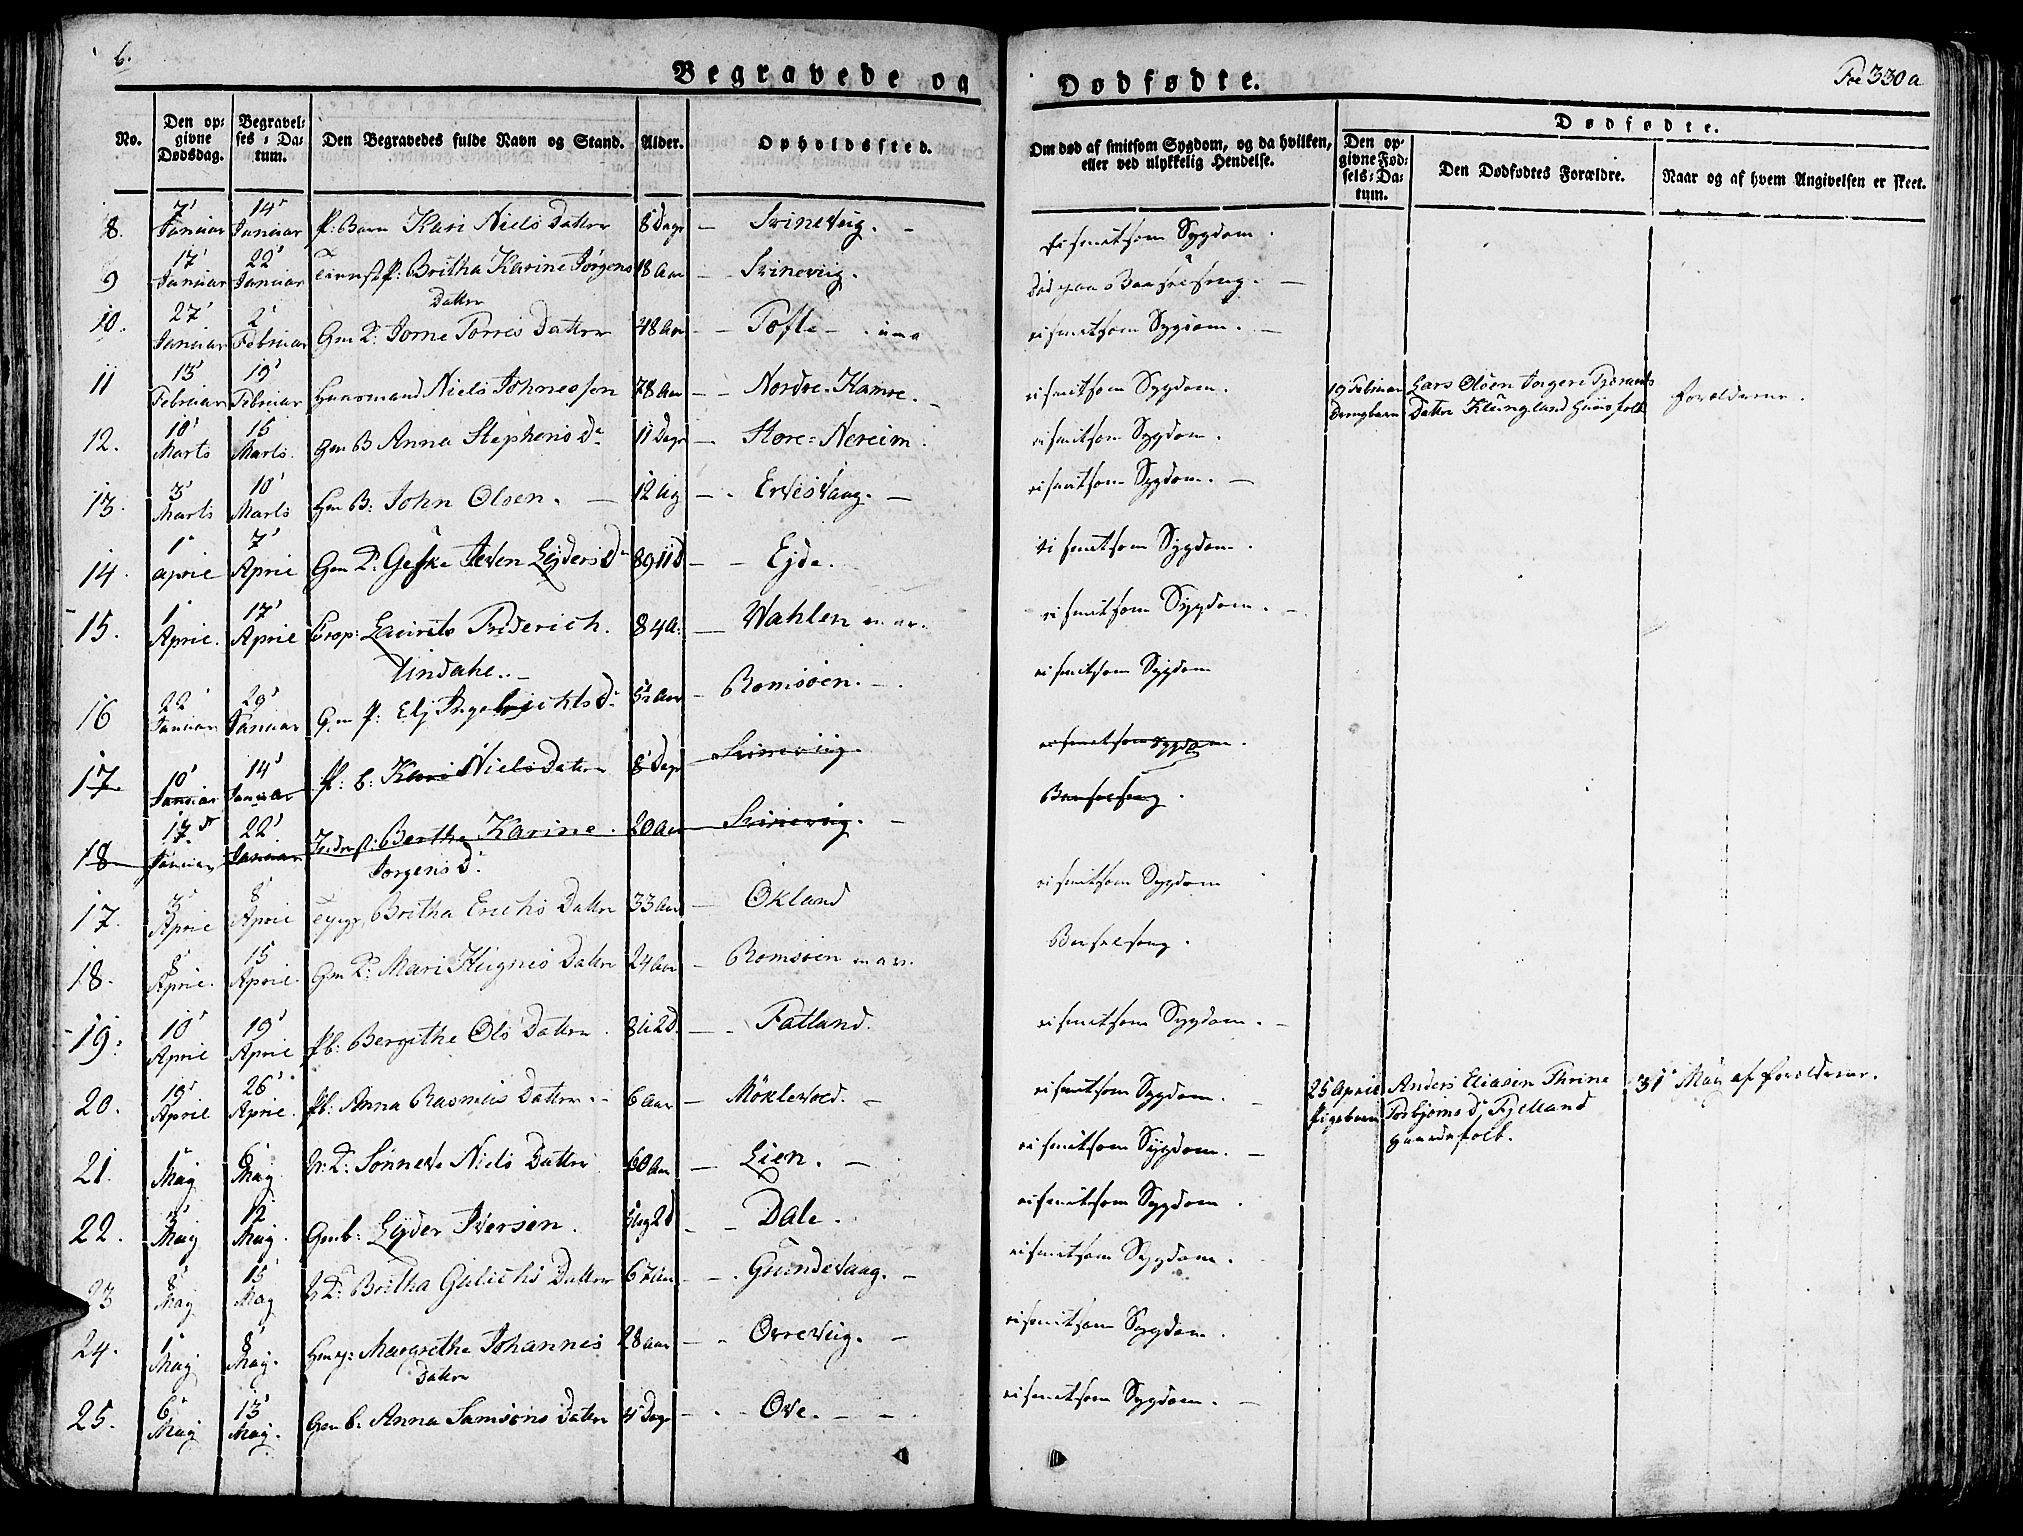 6.
Begravede og Dødfødte.
Foe 330 a
No. Den opgivne Dødsdag. Begravelses-Datum. Den Begravedes fulde Navn og Stand. Alder. Opholdssted. Om død af smitsom Sygdom, og da hvilken, eller ved ulykkelig Hendelse. Dødfødte. Den opgivne Fødsels-Datum. Den Dødfødtes Forældre. Naar og af hvem Angivelsen er skeet.
8. 7' Januar 14' Januar P: Barn Kari Niels Datter 8 Dage — Svineviig. — Ei smitsom Sygdom.
9 17' Januar 22' Januar P: Britha Karine Jørgens Datter 18 Aar — Svineviig. Død paa Barselseng. —
10. 27' Januar 2' Februar Gm K: Datter 48 Aar — Tofte — ei smitsom Sygdom. —
11 13' Februar 19' Februar Huusmand Niels Johnessøn 78 Aar — Nordre-Hamre. — ei smitsom Sygdom. 19 Februar Drengbarn Lars Olsen Datter Klungland Huusfolk Forældrene.
12. 10' Marts 15 Marts Gm B Anna Stephens Dr 11 Dage — Store-Nereim. ei smitsom Sygdom.
13. 3' Marts 10' Marts Gm B: John Olsen. — 12 Ug — Ervesvaag. — ei smitsom Sygdom. —
14. 1' April 7' April Gm K: Geske Dr — Ejde. ei smitsom Sygdom.
15. 1' April. 17' April Laurits Friderich Lindahl. — 84 A. — Wahlen ei smitsom Sygdom. —
16 22' Januar 29' Januar Gm P: Elj Dr 52 Aar — Romsøen. — ei smitsom Sygdom
17. 10' Januar 14' Januar P: b: Kari Niels Datter 8 Dage Svineviig. ei smitsom Sygdom.
18 17' Januar 22' Januar Bertha Karine Jørgens D. 20 Aar Svineviig. — Barselseng.
17. 3' April 8' April Britha Erichs Datter 33 Aar — Økland ei smitsom Sygdom
18. 8' April. 15 April Gm K: Mari Datter 24 Aar — Romsøen Barselseng.
19. 10' April 19' April Pb: Bergithe Ols Datter. — Fatland. ei smitsom Sygdom. —
20. 19' April 26' April. Pb: Anna Rasmus Datter 6 Aar — Møklevold. — ei smitsom Sygdom. — 25 April Pigebarn Anders Eliasen Thrine Torbjørns D. Fjelland Gaardsfolk. 31' May af Forældrene.
21. 1' May 6' May K: Sønneve Niels Datter 60 Aar — Lien. — ei smitsom Sygdom. —
22. 3' May 12 May. Gmb: Ejder Iversen. — Dale. ei smitsom Sygdom.
23 8' May 15' May K: Britha Datter 67 Aar — Gundevaag. — ei smitsom Sygdom.
24. 1' May 8' May. Margrethe Johannes Datter 28 Aar — Ovreviig. — ei smitsom Sygdom.
25. 6' May 13' May. Gm b. Anna Samsons Datter 4 Dage — Ove. — ei smitsom Sygdom. —